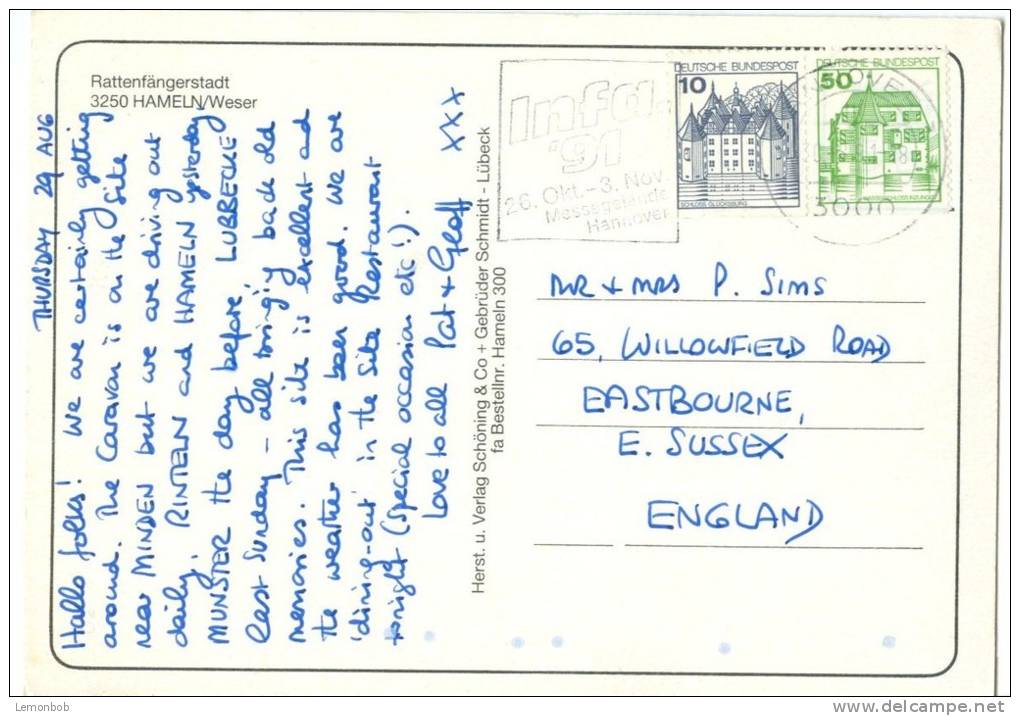 Rattenfängerstadt
3250 HAMELN/Weser
THURSDAY 29 AUG
Hallo folks! We are certainly getting
around. The Caravan is on the Site
near MINDEN but we are driving out
daily, RINTELN and HAMELN yesterday
MUNSTER the day before, LUBBECKE
last Sunday – all bring'g back old
memories. This site is excellent and
the weather has been good. We are
'dining-out' in the Site Restaurant
tonight (Special occassion etc!).
Love to all Pat + Geoff xxx
Herst. u. Verlag Schöning & Co + Gebrüder Schmidt - Lübeck
fa Bestellnr. Hameln 300
Infa.
'91
26. Okt.-3. Nov.
Messegelände
Hannover
DEUTSCHE BUNDESPOST
10
SCHLOSS GLÜCKSBURG
DEUTSCHE BUNDESPOST
50
HANNOVER
3000
MR + MRS P. SIMS
65, WILLOWFIELD ROAD
EASTBOURNE,
E. SUSSEX
ENGLAND
Lemonbob
www.delcampe.net